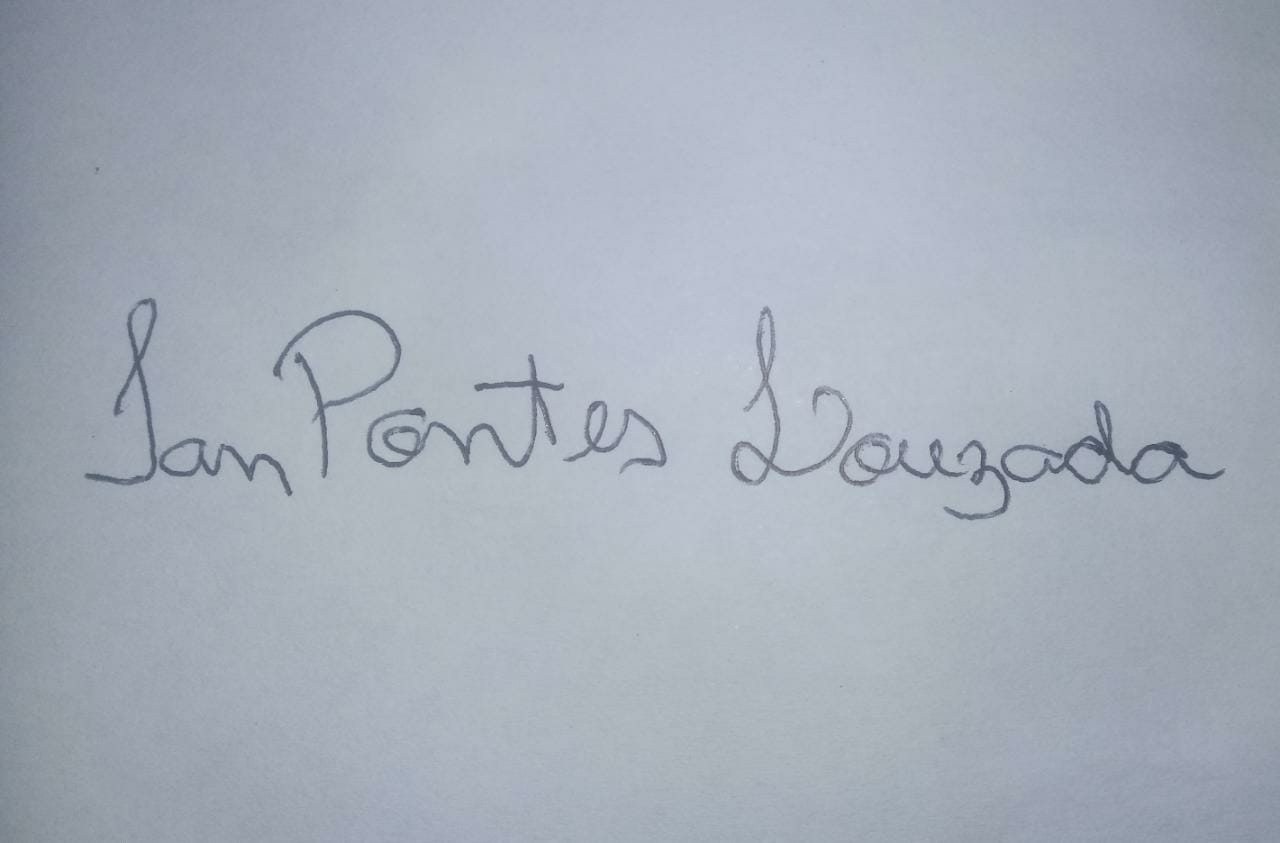 Ian Pontes Louzada